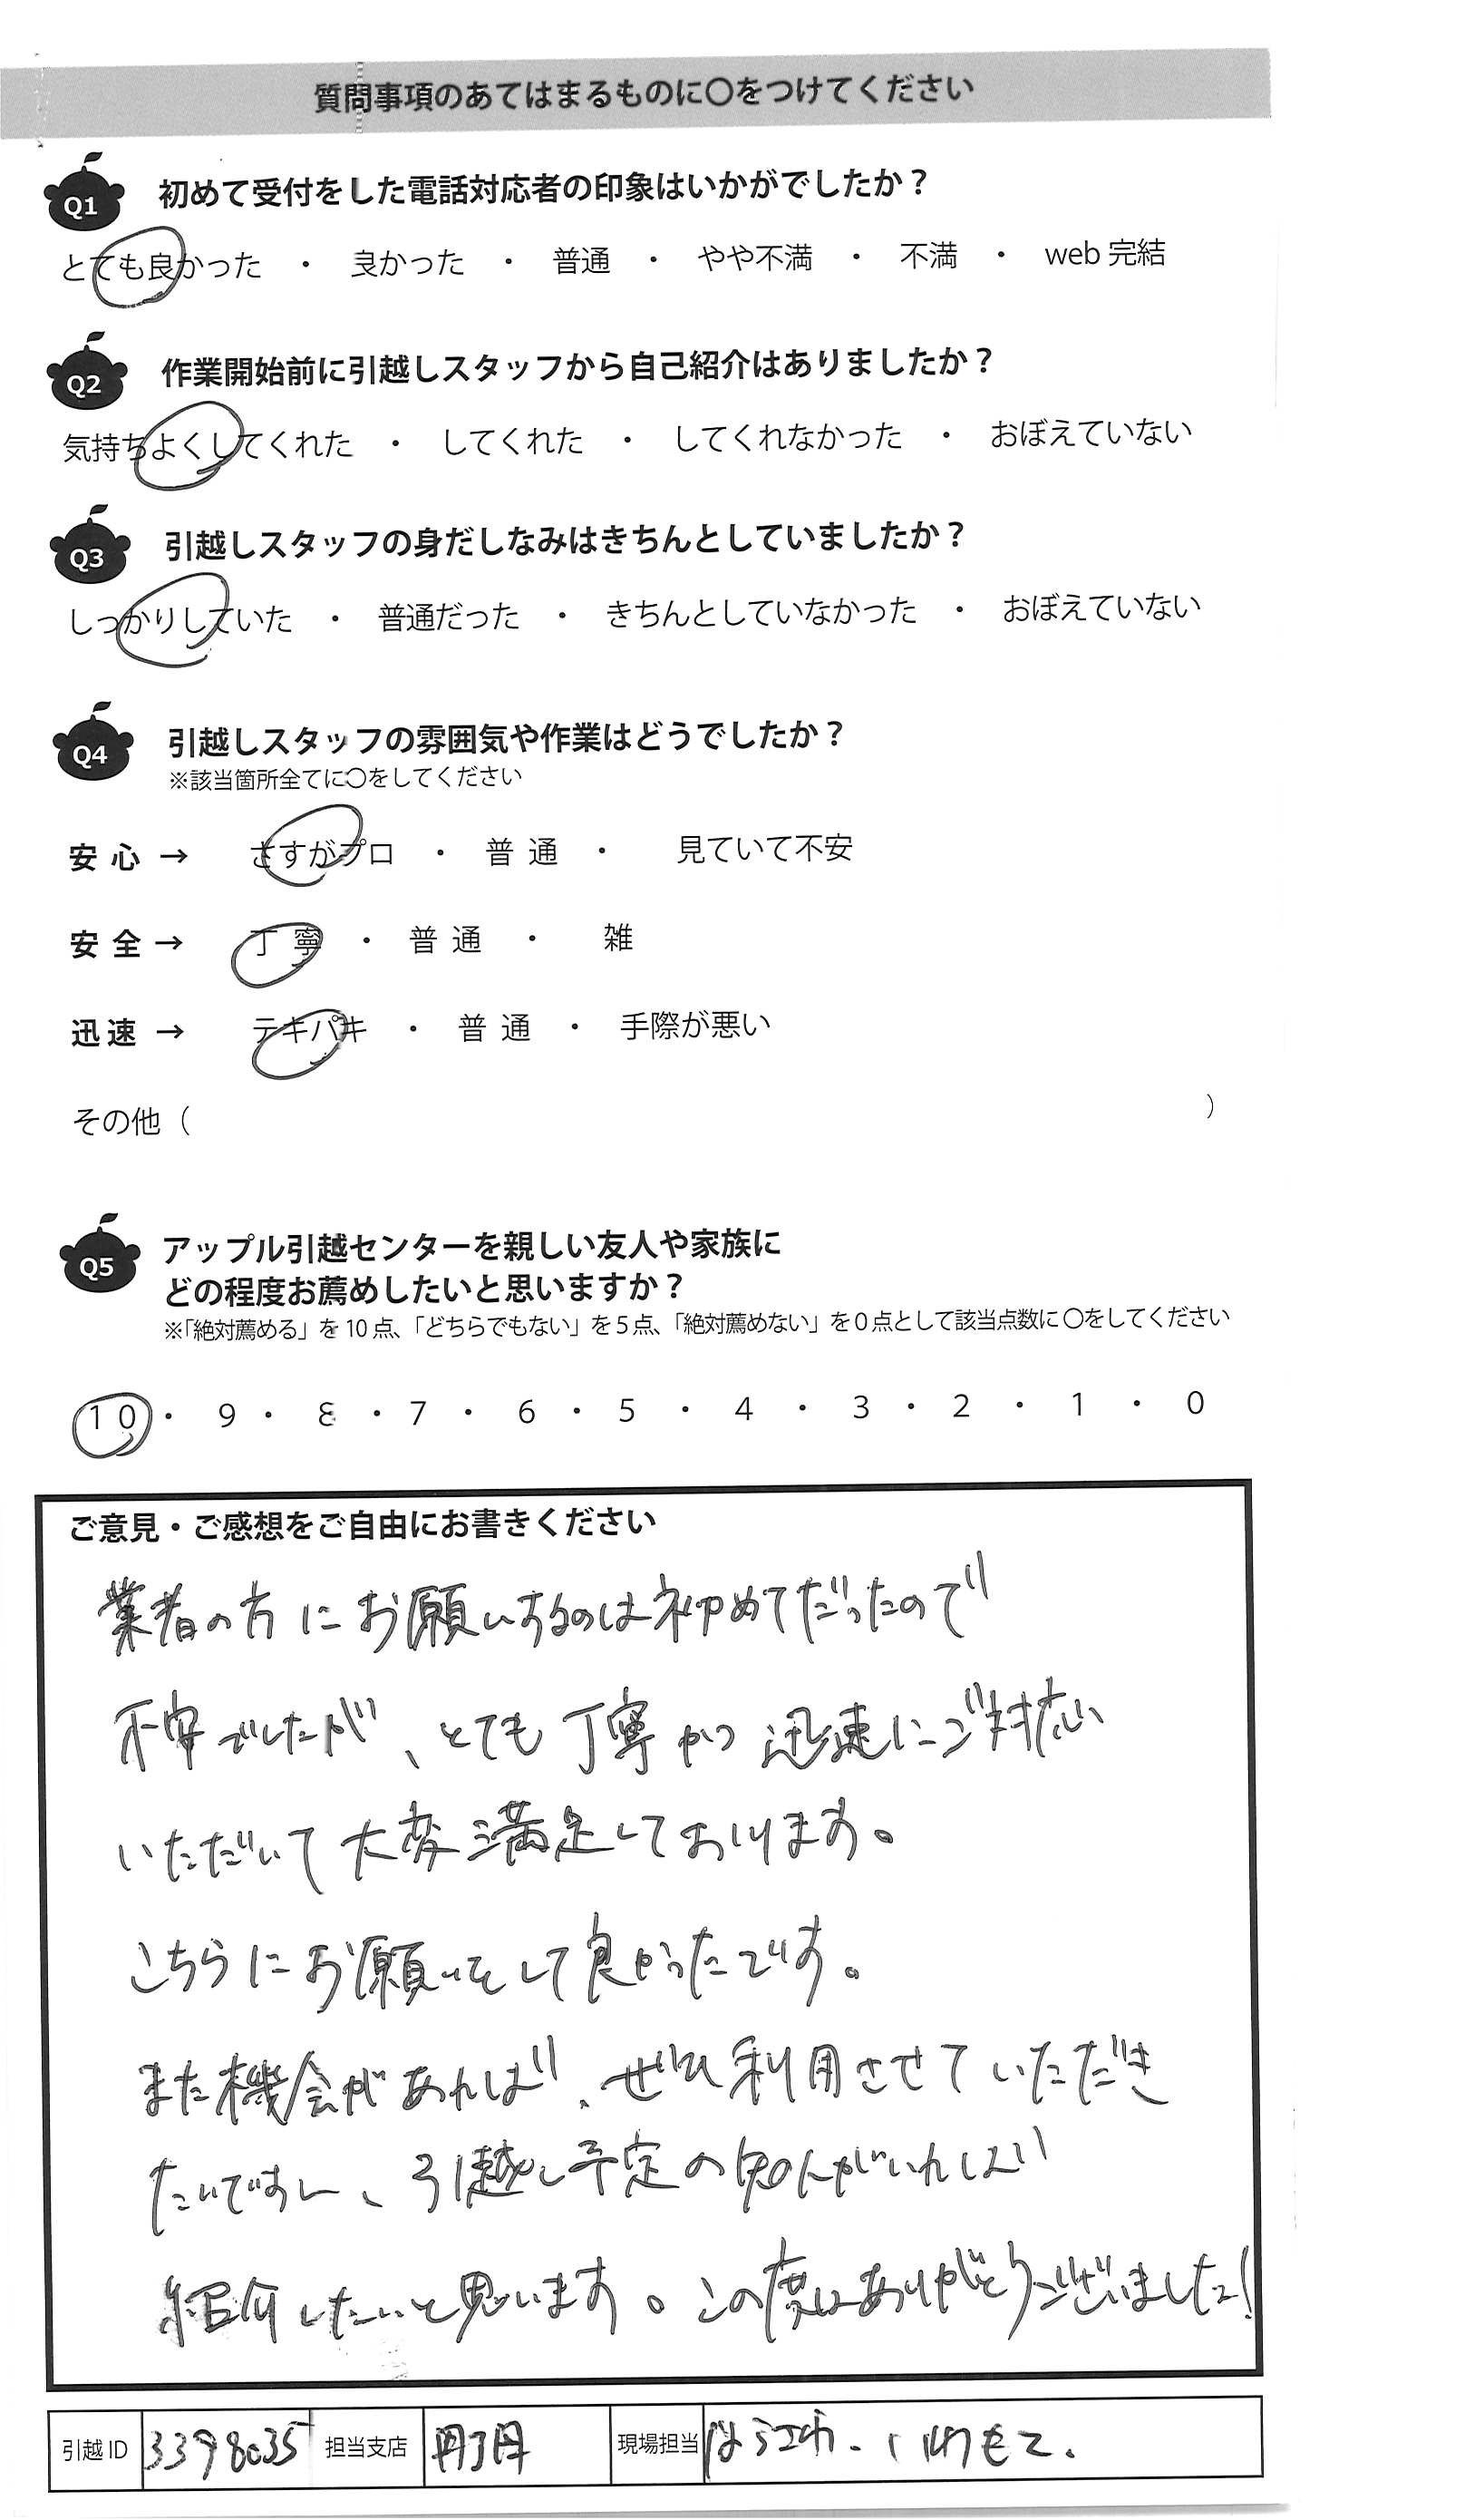 質問事項のあてはまるものに〇をつけてください
Q1 初めて受付をした電話対応者の印象はいかがでしたか？
とても良かった ・ 良かった ・ 普通 ・ やや不満 ・ 不満 ・ web 完結
Q2 作業開始前に引越しスタッフから自己紹介はありましたか？
気持ちよくしてくれた ・ してくれた ・ してくれなかった ・ おぼえていない
Q3 引越しスタッフの身だしなみはきちんとしていましたか？
しっかりしていた ・ 普通だった ・ きちんとしていなかった ・ おぼえていない
Q4 引越しスタッフの雰囲気や作業はどうでしたか？
※該当箇所全てに〇をしてください
安心 → さすがプロ ・ 普通 ・ 見ていて不安
安全 → 丁寧 ・ 普通 ・ 雑
迅速 → テキパキ ・ 普通 ・ 手際が悪い
その他（ ）
Q5 アップル引越センターを親しい友人や家族に
どの程度お薦めしたいと思いますか？
※「絶対薦める」を10点、「どちらでもない」を5点、「絶対薦めない」を0点として該当点数に〇をしてください
10 ・ 9 ・ 8 ・ 7 ・ 6 ・ 5 ・ 4 ・ 3 ・ 2 ・ 1 ・ 0
ご意見・ご感想をご自由にお書きください
業者の方にお願いするのは初めてだったので
不安でしたが、とても丁寧かつ迅速にご対応
いただいて大変満足しております。
こちらにお願いをして良かったです。
また機会があれば、ぜひ利用させていただき
たいですし、引越し予定の知人がいれば
紹介したいと思います。この度はありがとうございました!
引越ID 3398035 担当支店 現場担当